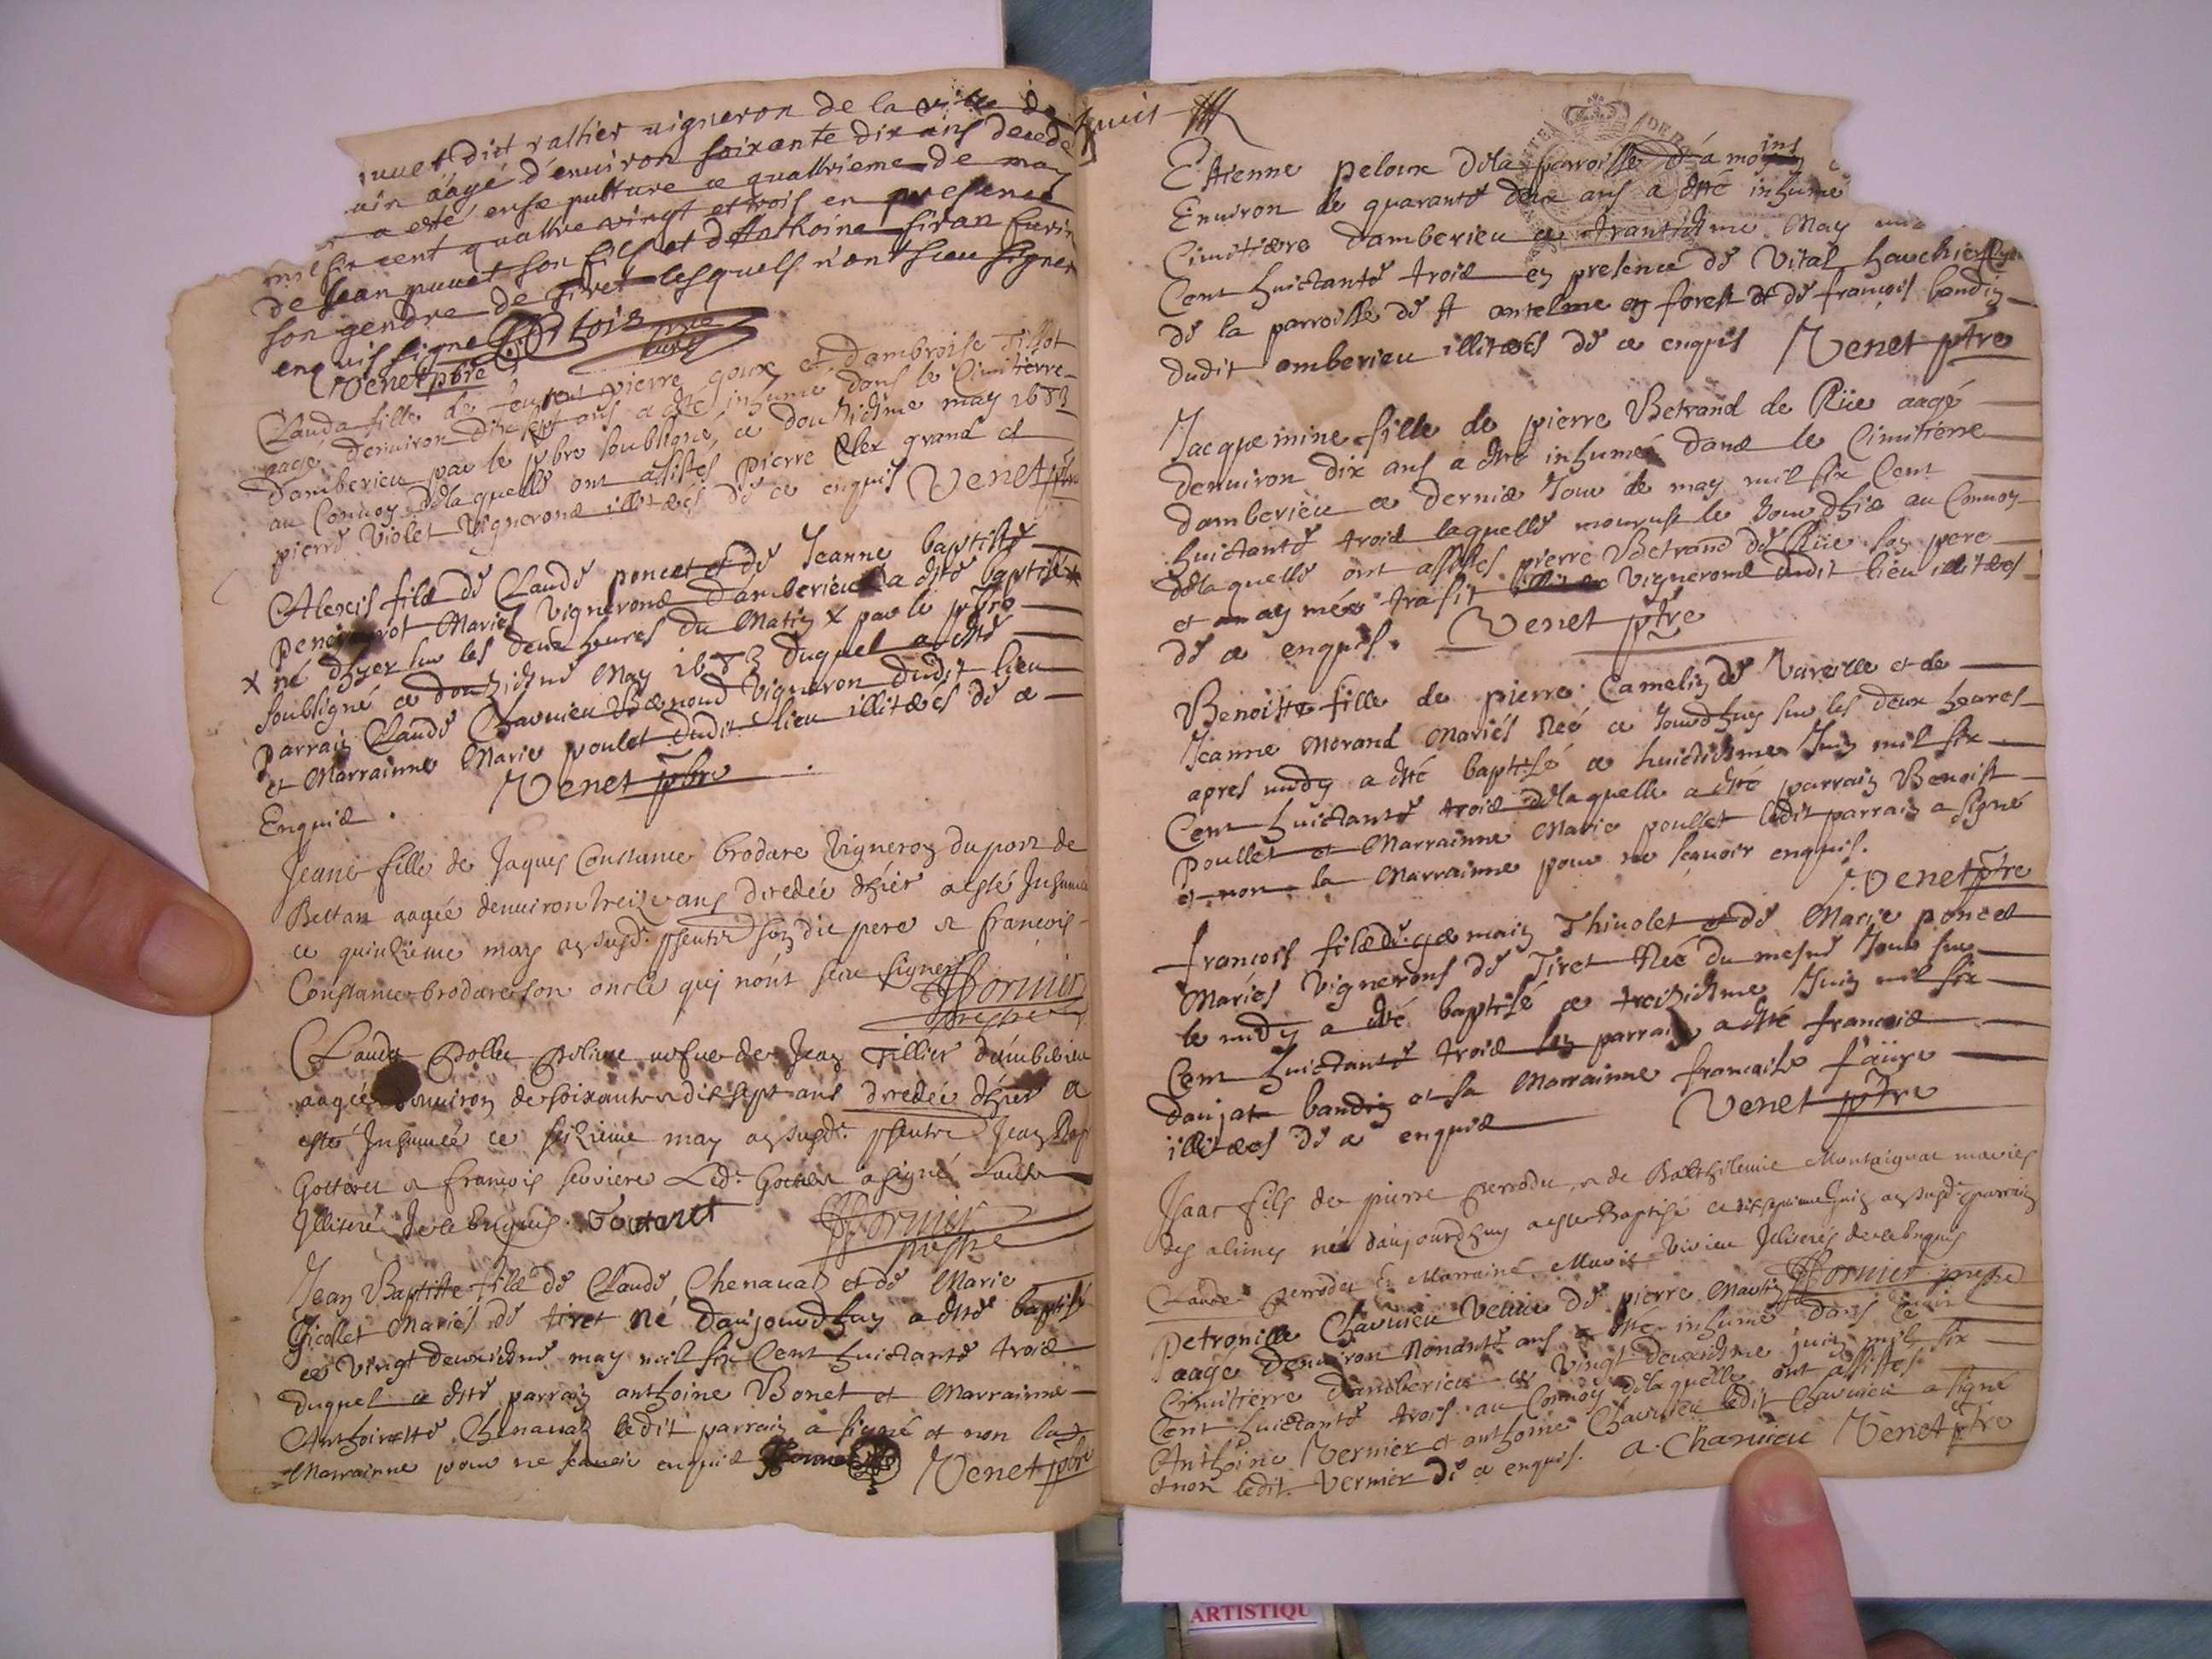 nuet dict rathier vigneron de la ville de
ain aagé d'environ soixante dix ans decedé
a esté en sepulture ce quattrieme de may
mil six cent quattre vingt et trois en presence
de Jean puuet son fils et d'Anthoine siran Curin
son gendre de tiret lesquels n'ont sceu signer
enquis signé
Venet pbre curé
Clauda fille de feu pierre goux et d'ambroise Tissot
aagé denviron dix sept ans a esté inhumé dans le Cimitierre
d'amberieu par le pbre soubsigné ce douziesme may 1683
au Convoy de laquelle ont assistes pierre grand et
pierre Violet Vignerons illiterés de ce enquis Venet pbre
Alexis fils de Claude poncet et de Jeanne baptiste
Mariés Vignerons damberieu a esté baptisé
x né dhyer sur les deux heures du Matin x par le pbre
soubsigné ce douziesme May 1683 duquel a esté
parrain Claude Charvieu Vignéron dudit lieu
et Marrainne Marie poulet dudit lieu illiterés de ce
Enquis . Venet pbre
Jeane fille de Jaques Constance brodare Vigneron du port de
Bettan aagée denuiron treize ans decedée dhier a esté Inhumée
ce quinzieme may an susd. psentz son dic pere & francois
Constance brodare son oncle qui n'ont sceu signer
Dornier prestre
Clauda vefue de Jean Tillier damberieu
aagée denuiron de soixante & dix sept ans decedée dhier a
esté Inhumée ce seizieme may an susd. psentz Jean Bap
Gotteret & francois Led. Gotteret a signé Lautre
Illiteré de ce Enquis. Goutaret Dornier prestre
Jean Baptiste fils de Claude Chenaual et de Marie
Gicollet Mariés de tiret né daujourdhuy a esté baptisé
ce Vingt deuxiesme may mil six Cent huictante trois
duquel a esté parrain anthoine Bonet et Marrainne
Anthoinette Chenaual ledit parrain a signé et non la
Marrainne pour ne scavoir enquis Bonnet Venet pbre
Estienne peloux de la parroisse d'a moins
Environ de quarante deux ans a esté inhumé
Cimitiere damberieu ce trantiesme May
Cent huictante trois en presence de Vital hauchier
de la parroisse de st antelme en forest et de francois bandin
dudit amberieu illiterés de ce enquis Venet ptre
Jacquemine fille de pierre Betrand de Rüe aagé
denuiron dix ans a esté inhumée dans le Cimitierre
damberieu ce dernier Jour de may mil six Cent
huictante trois laquelle mourust le Jour dhier au Convoy
de laquelle ont assistes pierre Betrand de Rüe son pere
et aymée trafit Vignerons dudit lieu illiterés
de ce enquis. Venet ptre
Benoiste fille de pierre Camelin de Vareille et de
Jeanne Morand Mariés Neé ce Jourdhuy sur les deux heures
apres midy a esté baptisé ce huictiesme Juin mil six
Cent huictante trois de laquelle a esté parrain Benoist
Poullet et Marrainne Marie poullet ledit parrain a signé
et non la Marrainne pour ne sçauoir enquis.
Venet ptre
francois fils de germain Thiuolet et de Marie poncet
Mariés Vignerons de Tiret Née du mesme Jour sur
le midy a esté baptisé ce treiziesme Juin mil six
Cent huictante trois son parrain a esté francois
daujat bandin et sa Marrainne francoise faüre
illiterés de ce enquis Venet ptre
Isaac fils de pierre perrodu, & de Balthilemie Montaignat mariés
des alimes né daujourdhuy a esté Baptisé ce dixseptieme Juin an susd. parrain
Claude perrodu & Marraine Marie Vivieu Illiterés de ce Enquis
Dornier prestre
Petronille Charuieu Veuue de pierre Martin
aagé denuiron Nonante ans a esté inhumé dans le
Cimitierre damberieu ce Vingt deuxiesme juin mil six
Cent huictante trois au Convoy de laquelle ont assistes
Anthoine Vernier et anthoine Charuieu ledit Charuieu a signé
et non ledit Vernier de ce enquis. A. Charuieu Venet ptre
ARTISTIQU